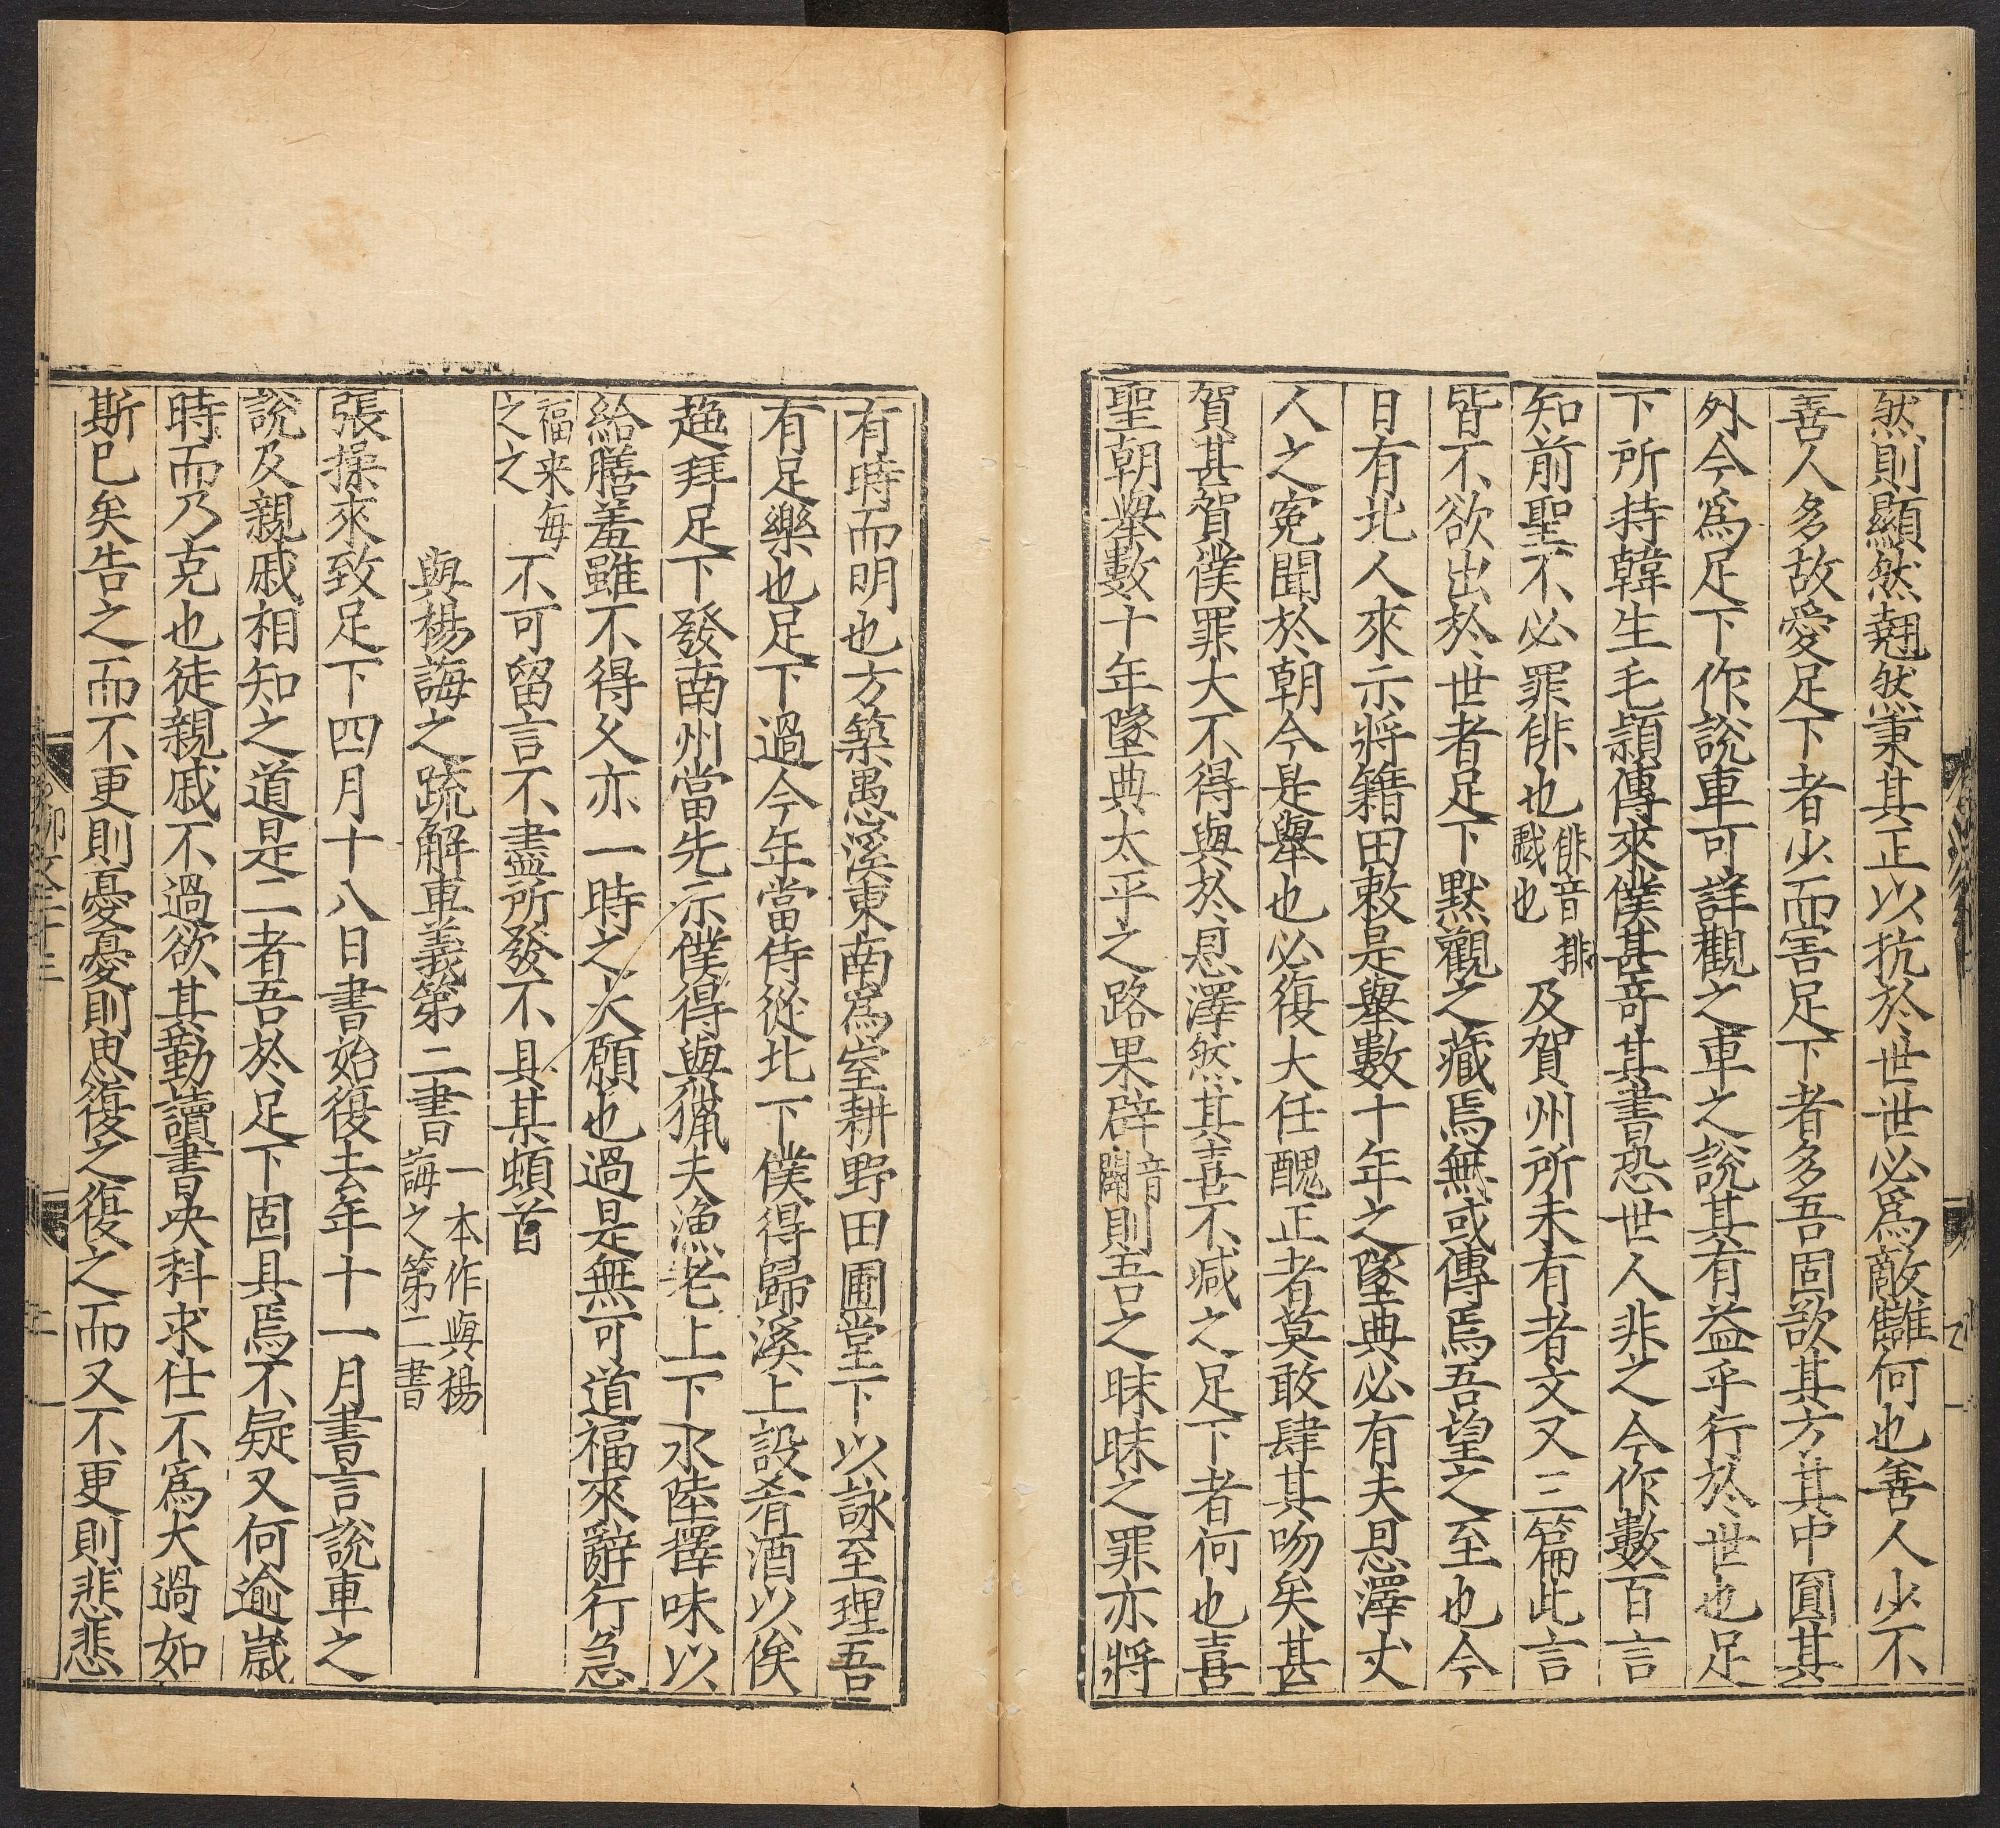 然則顯然翹然秉其正以抗於世世必爲敵讎何也善人少不
善人多故愛足下者少而害足下者多吾固欲其方其中圓其
外今爲足下作說車可詳觀之車之說其有益乎行於世也足
下所持韓生毛頴傳來僕甚竒其書恐世人非之今作數百言
知前聖不必罪俳也俳音排戲也及賀州所未有者文又三篇此言
皆不欲出於世者足下默觀之藏焉無或傳焉吾望之至也今
日有北人來示將籍田敕是舉數十年之墜典必有夫恩澤丈
人之寃聞於朝今是舉也必復大任醜正者莫敢肆其吻矣甚
賀甚賀僕罪大不得與於恩澤然其喜不减之足下者何也喜
聖朝舉數十年墜典太平之路果辟音闢則吾之昧昧之罪亦將
有時而明也方築愚溪東南爲室耕野田圃堂下以詠至理吾
有足樂也足下過今年當侍從北下僕得歸溪上設肴酒以俟
趨拜足下發南州當先示僕得與獵夫漁老上下水陸擇味以
給膳羞雖不得久亦一時之大願也過是無可道福來辭行急
福来每之之不可留言不盡所發不具某頓首
與楊誨之疏解車義第二書一本作與楊誨之第二書
張操來致足下四月十八日書始復去年十一月書言說車之
說及親戚相知之道是二者吾於足下固具焉不疑又何逾歲
時而乃克也徒親戚不過欲其勤讀書決科求仕不爲大過如
斯已矣告之而不更則憂憂則思復之復之而又不更則悲悲